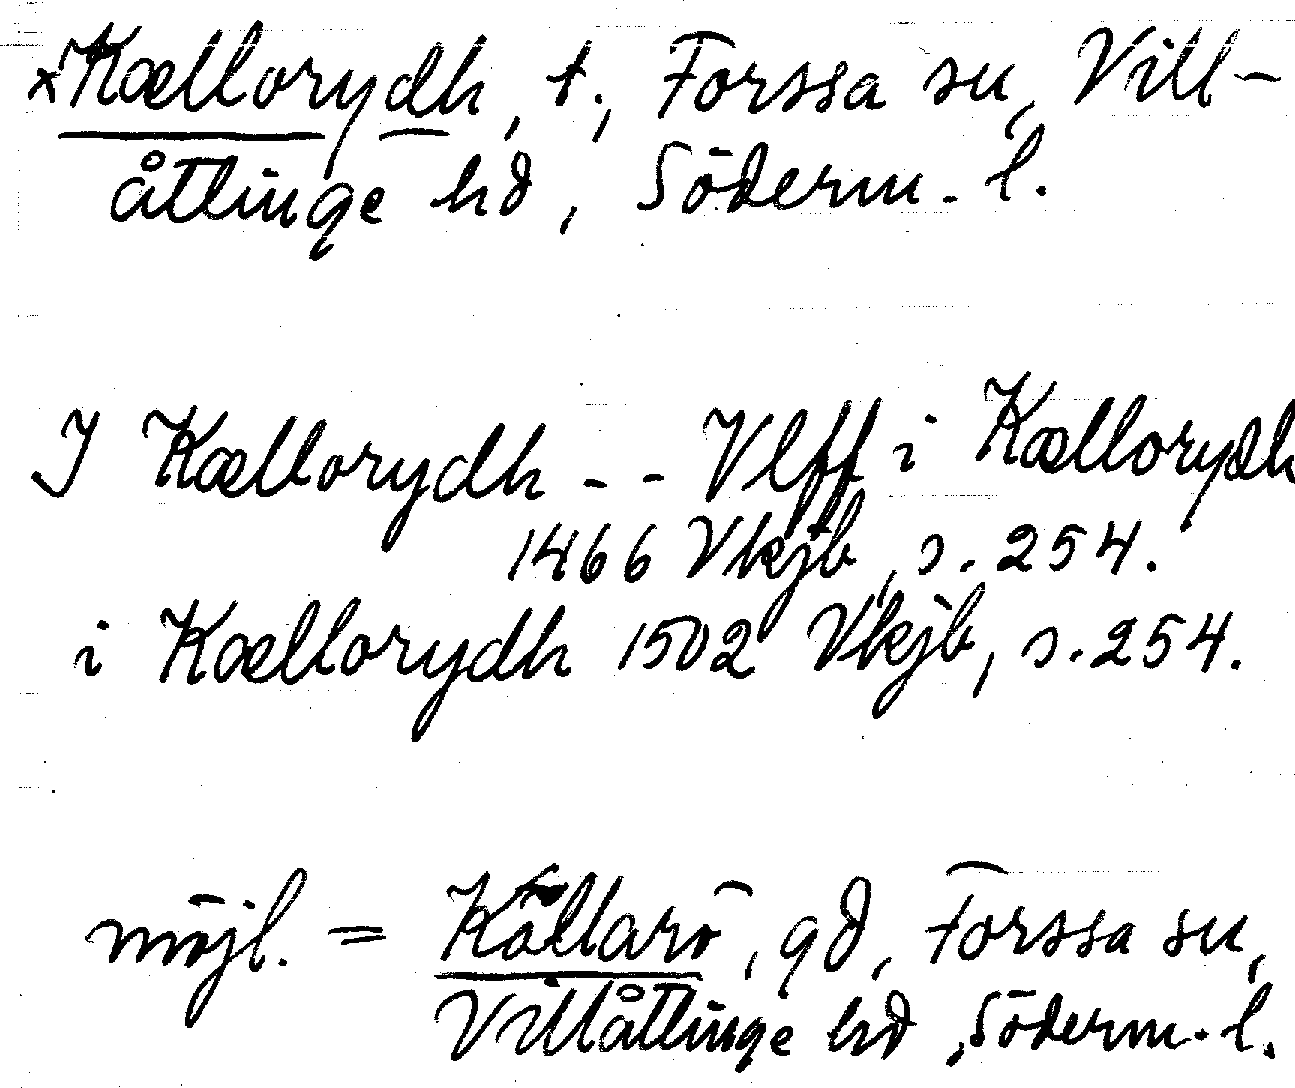 ×Kællorydh, t., Forssa sn, Vill-
åttinge hd, Söderm. l.
I Kællorydh - - Vlff i Kællorydh
1466 Vkjb, s. 254.
i Kællorydh 1502 Vkjb, s. 254.
möjl. = Källarö, gd, Forssa sn,
Villåttinge hd, Söderm. l.